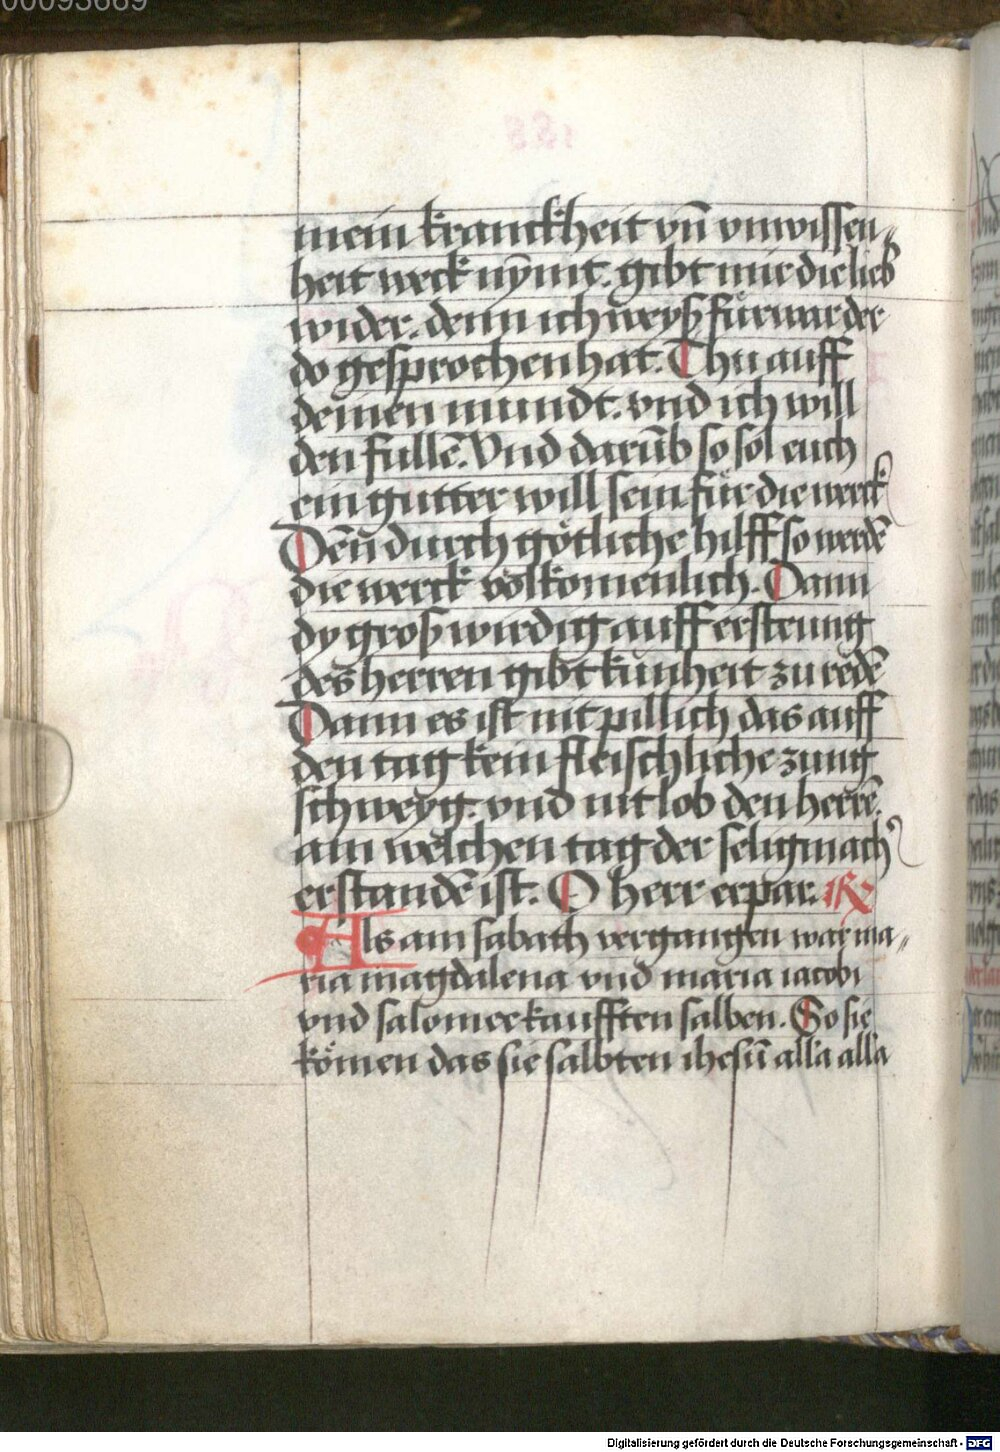 00093669
mein kranckheit vn̄ vnwissen„
heit weck nȳmt. gibt mir die lieb
wider. denn ich weyß fürwar der
do gesprochen hat. Thu auff
deinen mundt. vnd ich will
den fullē. Vnd darūb so sol euch
ein gutter will sein für die werck
Den̄ durch götliche hilff so werdē
die werck volkomenlich. Dann
dy groß wirdig auff ersteung
des herren gibt kunheit zu redē
Dann es ist nit pillich das auff
den tag kein fleischliche zung
schweyg. vnd nit lob den herrē.
am welchen tag der seligmach
erstandē ist. O herr erpar. ℟
Als am sabath vergangen war ma„
ria magdalena vnd maria iacobi
vnd salomee kaufften salben. So sie
kömen das sie salbten ihesū all'a all'a
Digitalisierung gefördert durch die Deutsche Forschungsgemeinschaft - DFG